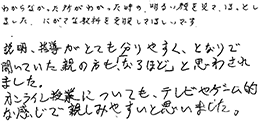 わからなかった所がわかった時の、明るい顔を見て、ほっとし
ました。にがてな教科を克服してほしいです。
説明、指導がとても分りやすく、となりで
聞いていた親の方も「なるほど」と思わされ
ました。
オンライン授業についても、テレビやゲーム的
な感じで親しみやすいと思いました。